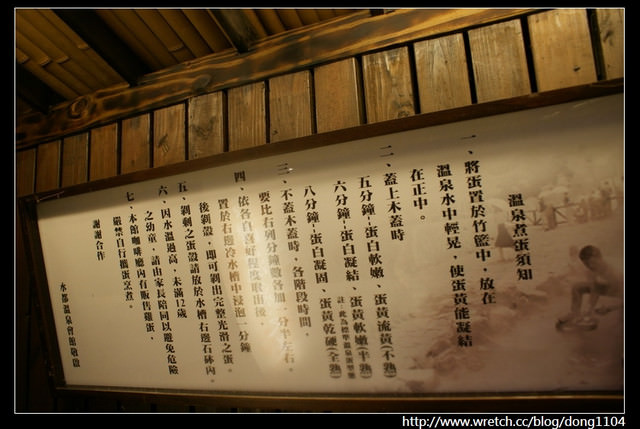 溫泉煮蛋須知
一、將蛋置於竹籃中，放在
溫泉水中輕晃，使蛋黃能凝結
在正中。
二、蓋上木蓋時
五分鐘--蛋白軟嫩、蛋黃流黃(不熟)
六分鐘--蛋白凝結、蛋黃軟嫩(半熟)
註：此為標準溫泉蛋型態
八分鐘--蛋白凝固、蛋黃乾硬(全熟)
三、不蓋木蓋時，各階段時間，
要比右列分鐘數各加一分半左右。
四、依各自喜好程度取出後，
置於右邊冷水槽中浸泡一分鐘
後剝殼，即可剝出完整光滑之蛋。
五、剝剩之蛋殼請放於水槽右邊石砵內。
六、因水溫過高，未滿12歲
之幼童，請由家長陪同以避免危險
七、本館咖啡廳內有販售雞蛋，
嚴禁自行攜蛋烹煮。
謝謝合作
水都溫泉會館敬啟
http://www.wretch.cc/blog/dong1104